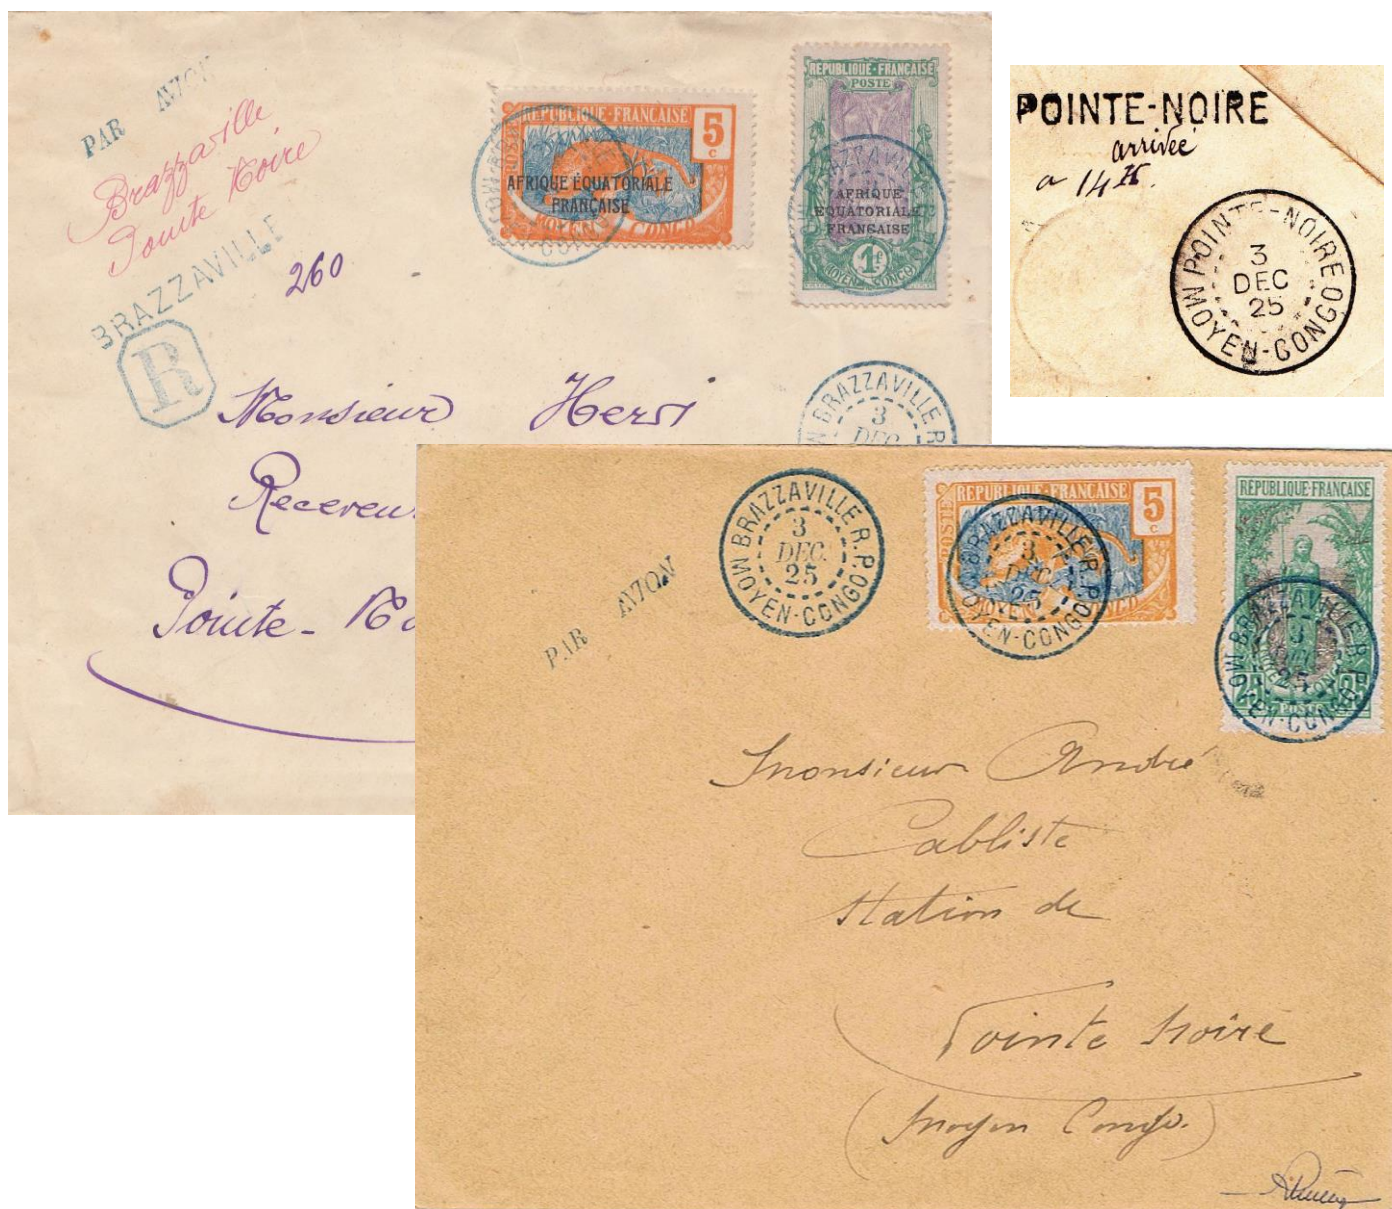 PAR AVION
Brazzaville
Pointe Noire
BRAZZAVILLE
R
260
RÉPUBLIQUE-FRANÇAISE
5
c
AFRIQUE ÉQUATORIALE
FRANÇAISE
MOYEN CONGO
RÉPUBLIQUE-FRANÇAISE
POSTE
AFRIQUE
EQUATORIALE
FRANÇAISE
1F
MOYEN-CONGO
Monsieur
Pointe-
BRAZZAVILLE R.
3
DEC.
POINTE-NOIRE
arrivée
a 14 H.
POINTE-NOIRE
3
DEC
25
MOYEN-CONGO
PAR AVION
BRAZZAVILLE R.P.
3
DEC.
25
MOYEN-CONGO
RÉPUBLIQUE-FRANÇAISE
POSTES
5
c
BRAZZAVILLE R.P.
3
DEC.
25
MOYEN-CONGO
RÉPUBLIQUE-FRANÇAISE
BRAZZAVILLE R.P.
3
25
MOYEN-CONGO
25
POSTES
Monsieur André
Cabliste
Station de
Pointe Noire
(Moyen Congo.)